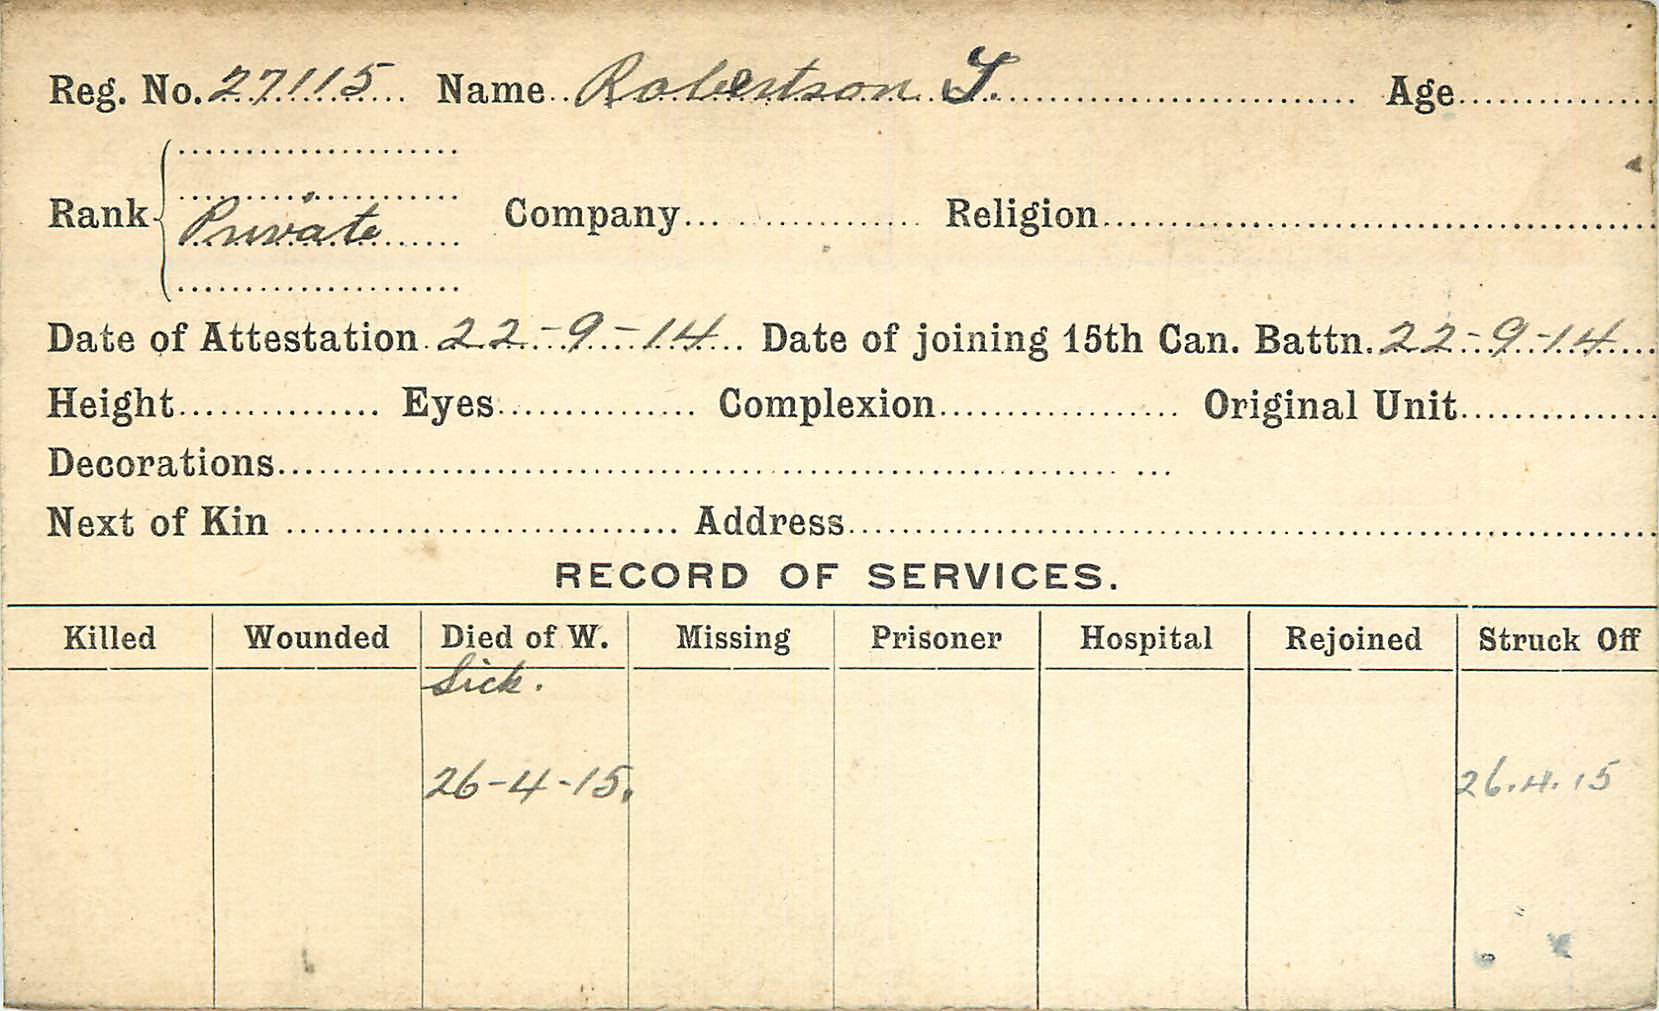 Reg. No. 27115 Name Robertson T. Age
Rank Private Company Religion
Date of Attestation 22-9-14 Date of joining 15th Can. Battn. 22-9-14
Height Eyes Complexion Original Unit
Decorations
Next of Kin Address
RECORD OF SERVICES.
Killed Wounded Died of W. Missing Prisoner Hospital Rejoined Struck Off
Sick.
26-4-15. 26.4.15